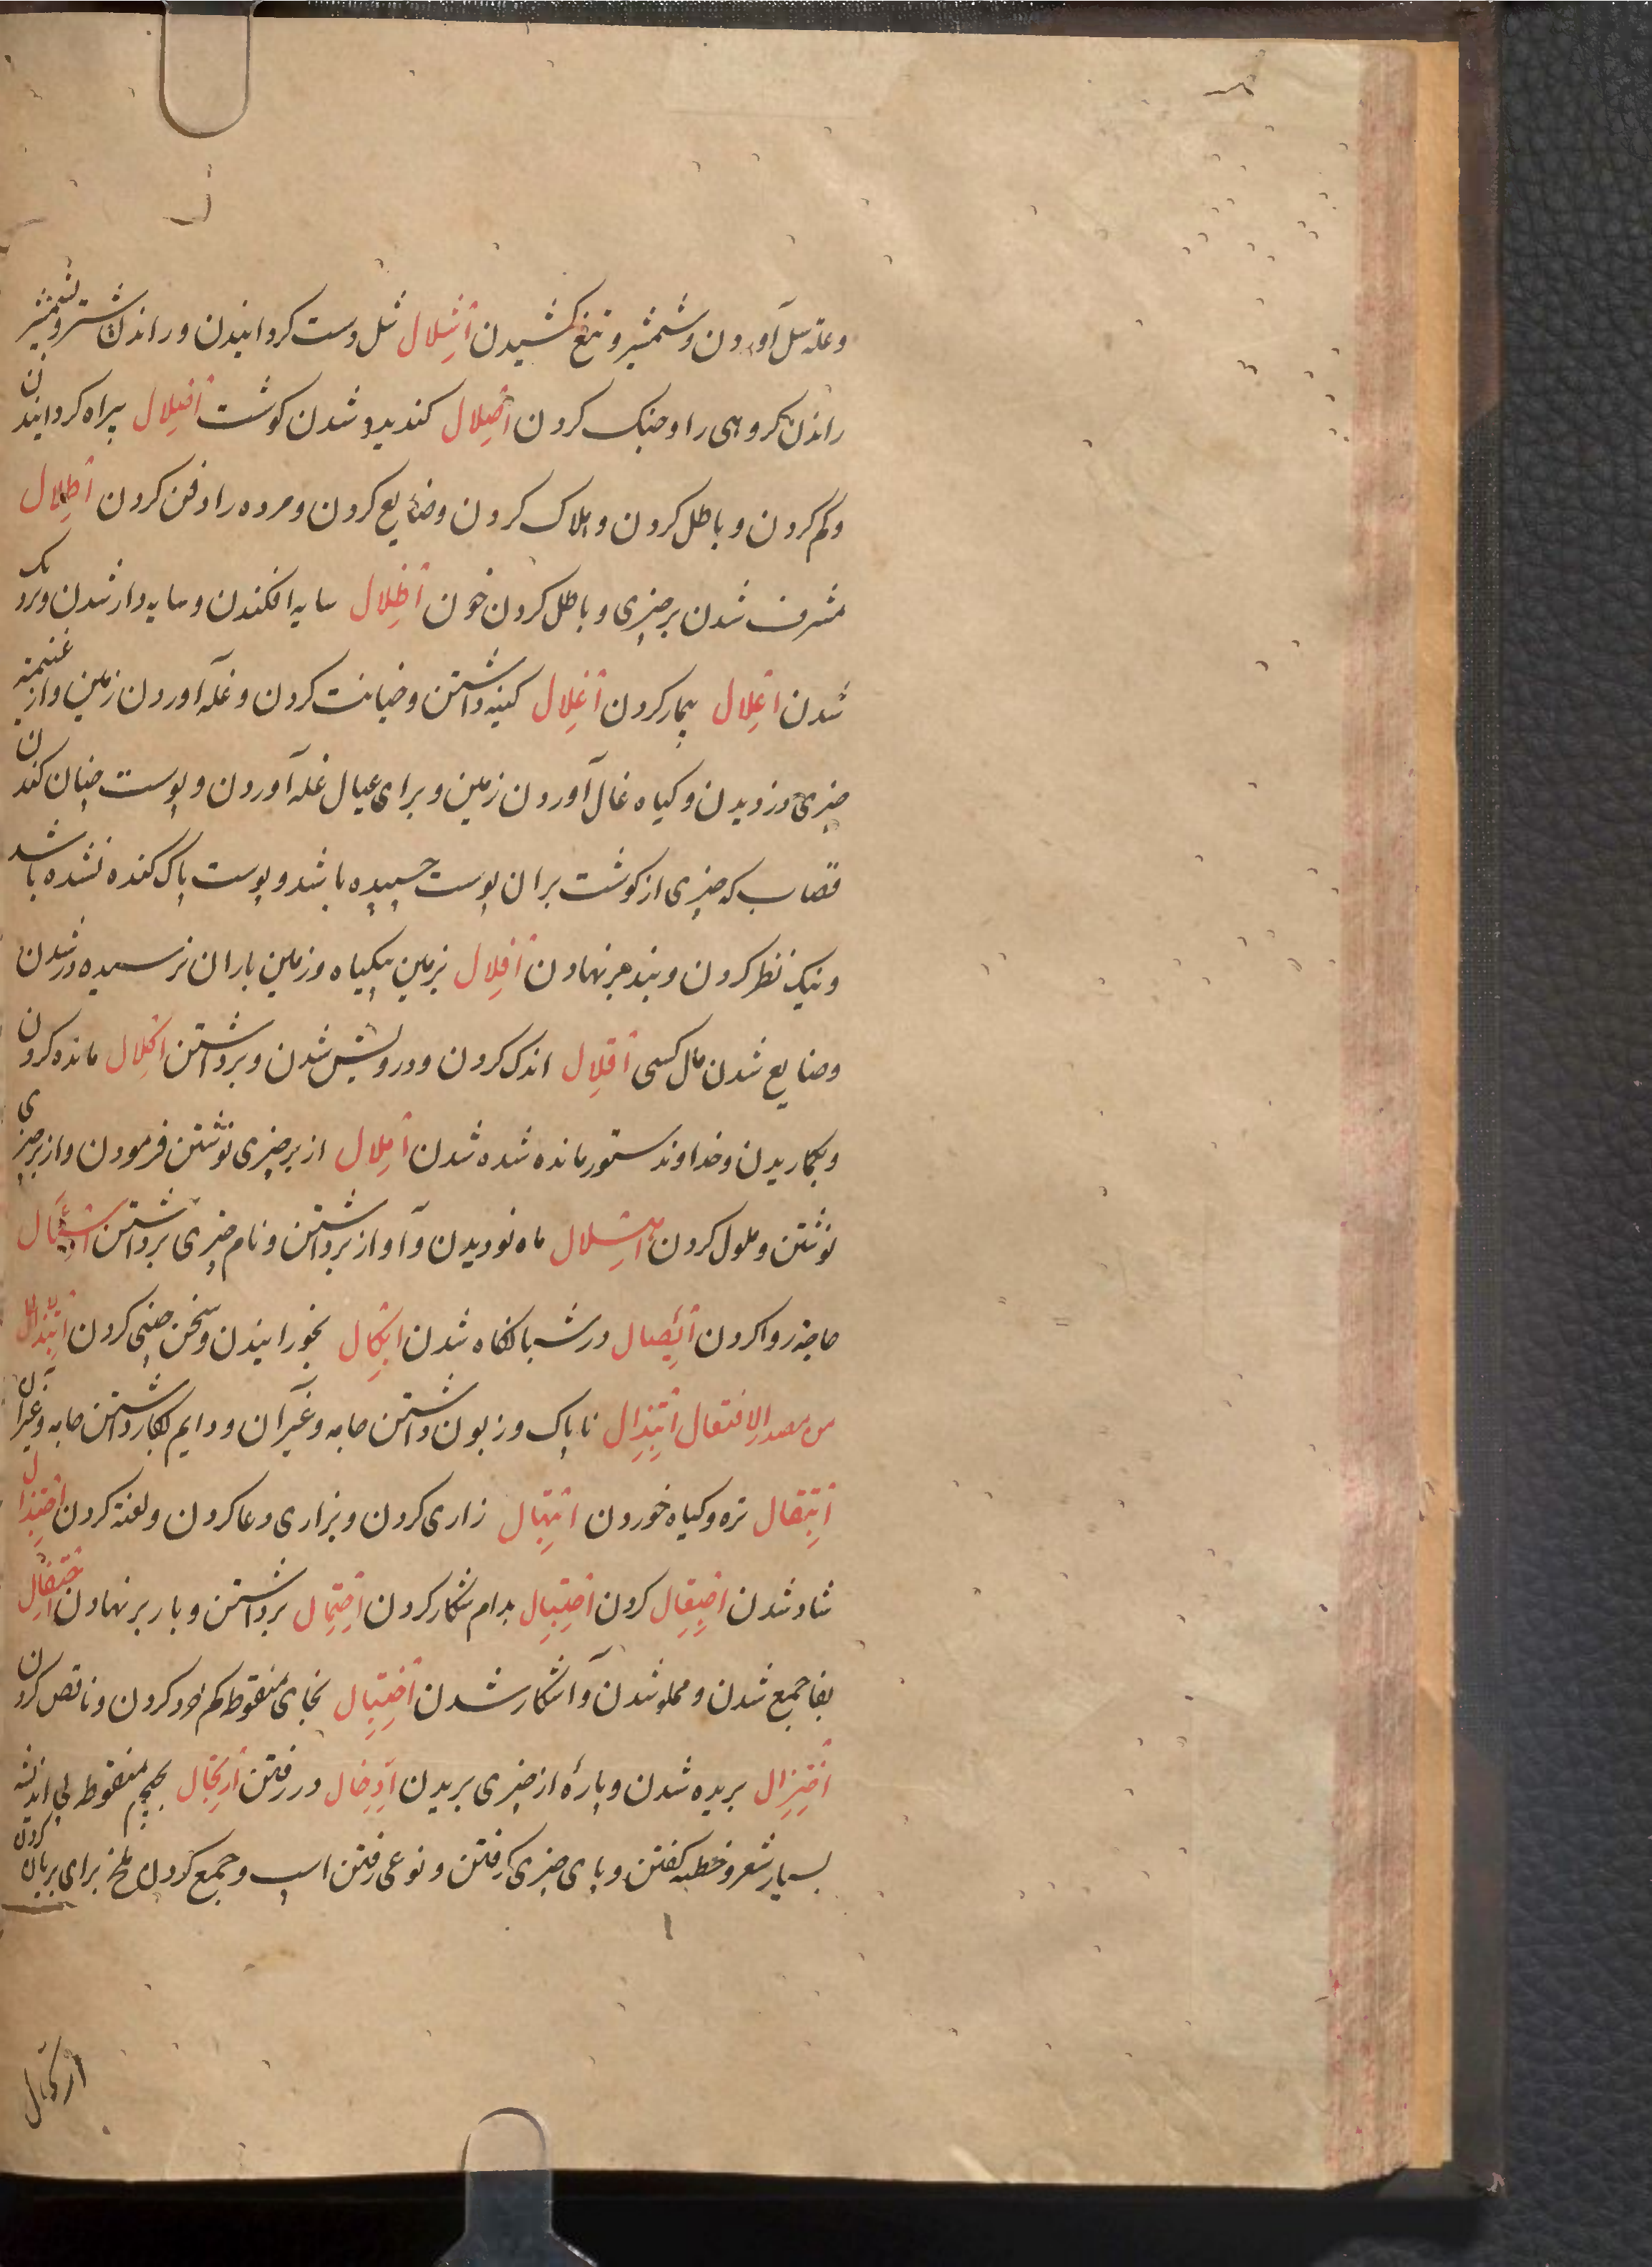 وعلة سل آوردن و شمشیر و تیغ کشیدن اشلال شل دست کردانیدن و راندن شتر و شمشیر
راندن کروهی را و جنک کردن اصلال کندیده شدن کوشت اضلال بیراه کردانیدن
و کم کردن و باطل کردن و هلاک کردن و ضایع کردن و مرده را دفن کردن اطلال
مشرف شدن بر چیزی و باطل کردن خون اظلال سایه افکندن و سایه دار شدن و نزدیک
شدن اعلال بیمار کردن اغلال کینه داشتن و خیانت کردن و غله آوردن زمین و از غنیمة
چیزی دزدیدن و کیاه غال آوردن زمین و برای عیال غله آوردن و پوست چنان کندن
قصاب که چیزی از کوشت بران پوست چسپیده باشد و پوست پاک کنده نشده باشد
و نیک نظر کردن و بند بر نهادن افلال بزمین بیکیاه و زمین باران نرسیده در شدن
و ضایع شدن مال کسی اقلال اندک کردن و درویش شدن و برداشتن اکلال مانده کردن
و خداوند ستور مانده شده شدن املال از بر چیزی نوشتن فرمودن و از بر چیزی
نوشتن و ملول کردن ماه نو دیدن و آواز برداشتن و نام چیزی برداشتن
حاجة روا کردن ائصال در شبانکاه شدن ائکال بخورانیدن و سخن چینی کردن ابتذال
من مصدر الافتعال ابتذال ناپاک و زبون داشتن جامه و غیر آن و دایم بکار داشتن جامه و غیر آن
ابتقال تره و کیاه خوردن ابتهال زاری کردن و بزاری دعا کردن و لعنة کردن اجتذال
شاد شدن کردن احتبال بدام شکار کردن احتمال برداشتن و بار بر نهادن احتفال
بفا جمع شدن و مملو شدن و آشکار شدن اختبال بخای منقوط کردن و ناقص کردن
اختزال بریده شدن و پارۀ از چیزی بریدن ادخال در رفتن ارتجال بجیم منقوط بی اندیشه
بسیار شعر و خطبه کفتن و پای چیزی کرفتن و نوعی رفتن اسپ و جمع کردن ملخ برای بریان کردن
ارتحال